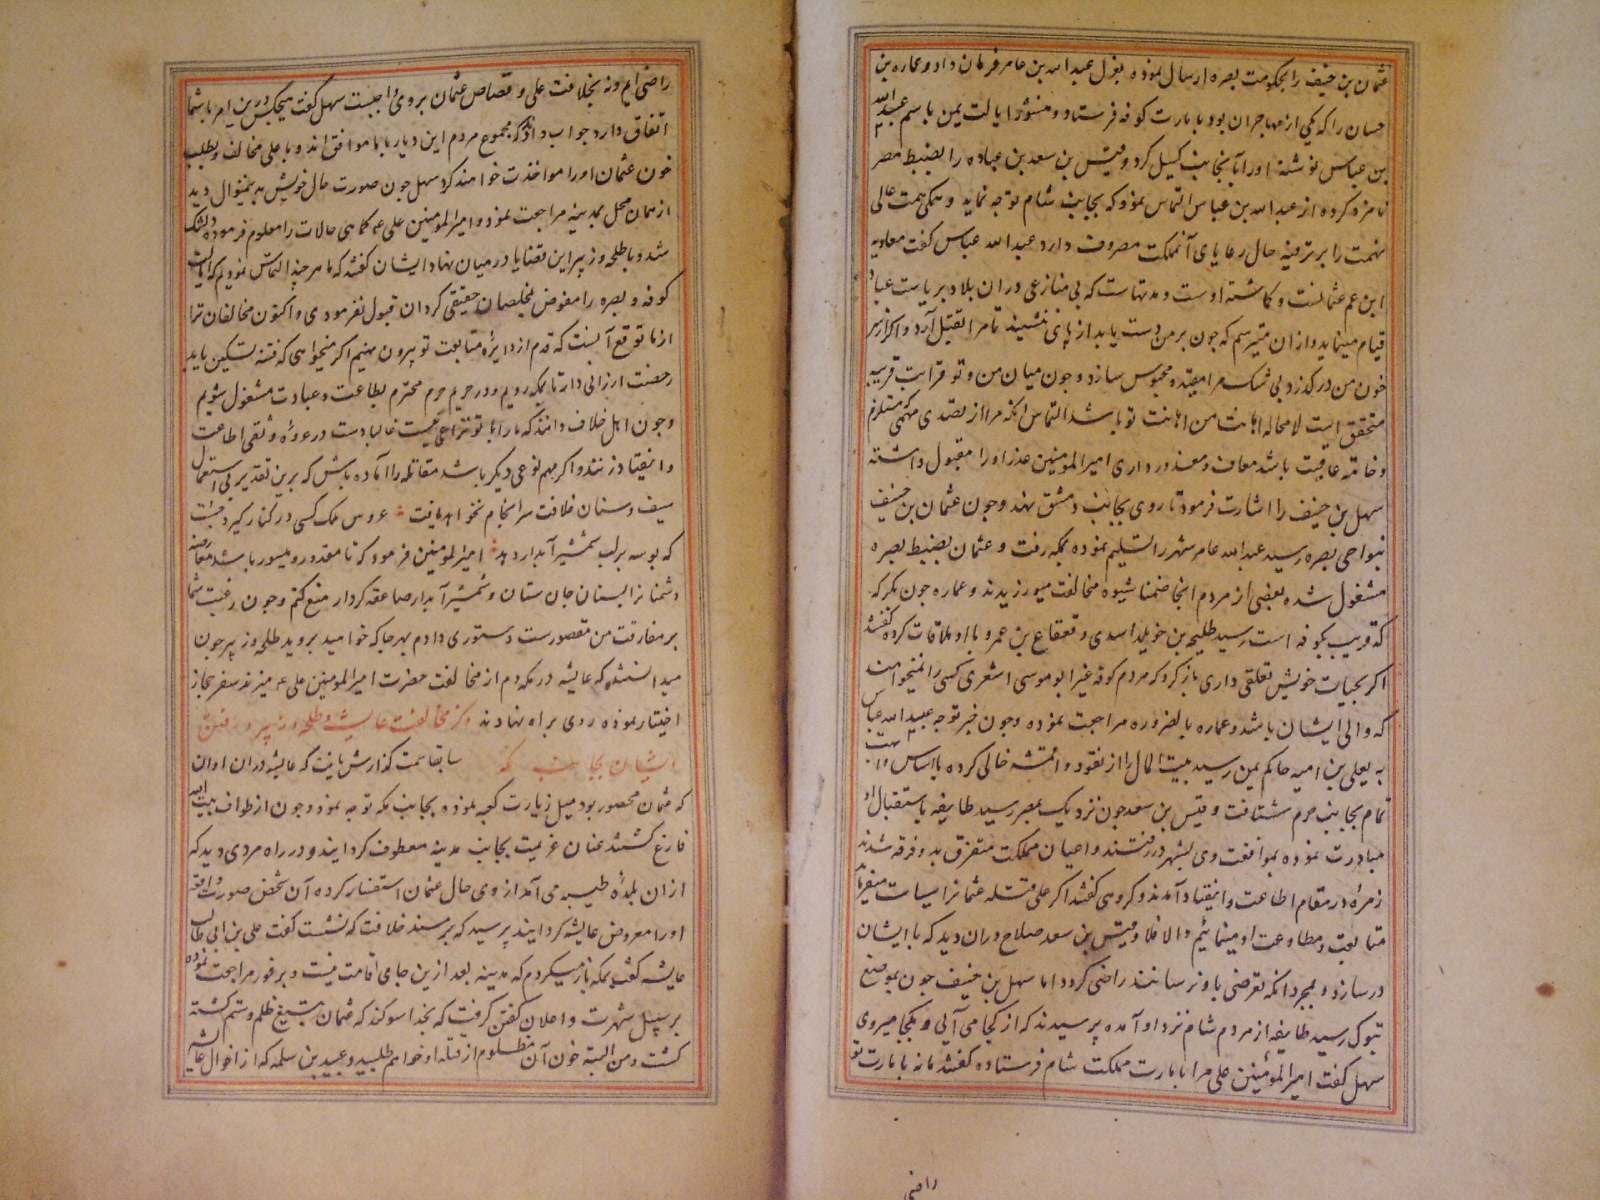 عثمان بن حنیف را بحکومت بصره ارسال نموده بعزل عبدالله بن عامر فرمان داد و عماره بن
حسان را که یکی از مهاجران بود بامارت کوفه فرستاد و منشور ایالت یمن باسم عبیدالله
بن عباس نوشته او را بآنجانب کسیل کرد و قیس بن سعد بن عباده را بضبط مصر
نامزد کرده از عبدالله بن عباس التماس نمود که بجانب شام توجه نماید و همکی همت عالی
نهمت را بر ترفیه حال رعایای آنمملکت مصروف دارد عبدالله عباس کفت معاویه
ابن عم عثمانست و کماشته اوست و مدتهاست که بی منازعی در ان بلاد بریاست عباد
قیام مینماید و از ان میترسم که چون بر من دست یابد از پای ننشیند تا مرا بقتل آرد و اکر از سر
خون من در کذرد بی شک مرا مقید و محبوس سازد و چون میان من و تو قرابت قریبه
متحقق است لا محاله اهانت من اهانت تو باشد التماس آنکه مرا از تصدی مهمی مستلزم
وخامت عاقبت باشد معاف و معذور داری امیرالمؤمنین عذر او را مقبول داشته
سهل بن حنیف را اشارت فرمود تا روی بجانب دمشق نهد و چون عثمان بن حنیف
بنواحی بصره رسید عبدالله عامر شهر را تسلیم نموده بمکه رفت و عثمان بضبط بصره
مشغول شده بعضی از مردم آنجا ضمنا شیوه مخالفت میورزیدند و عماره چون
که قریب بکوفه است رسید طلیحه بن خویلد اسدی و قعقاع بن عمرو با او ملاقات کرده کفتند
اکر بحیات خویش تعلقی داری بازکرد که مردم کوفه غیر ابوموسی اشعری کسی را نمیخواهند
که والی ایشان باشد و عماره بالضروره مراجعت نموده و چون خبر توجه عبیدالله عباس
به یعلی بن امیه حاکم یمن رسید بیت المال را از نقود و اقمشه خالی کرده با اساس
تمام بجانب حرم شتافت و قیس بن سعد چون نزدیک بمصر رسید طایفه باستقبال او
مبادرت نموده بموافقت وی بشهر در رفتند و اعیان مملکت متفرق بدو فرقه شدند
زمره در مقام اطاعت و انقیاد آمدند و کروهی کفتند اکر علی قتله عثمانرا سیاست میفرماید
متابعت و مطاوعت او مینمائیم والا فلا و قیس بن سعد صلاح در ان دید که با ایشان
در سازد و بمجرد آنکه تعرضی باو نرسانند راضی کردد اما سهل بن حنیف چون بموضع
تبوک رسید طایفه از مردم شام نزد او آمده پرسیدند که از کجا می آئی و بکجا میروی
سهل کفت امیرالمؤمنین علی مرا بامارت مملکت شام فرستاده کفتند ما نه بامارت تو
راضی
راضی ایم و نه بخلافت علی و قصاص عثمان بر وی واجبست سهل کفت هیچکس درین امر با شما
اتفاق دارد جواب دادند که مجموع مردم این دیار با ما موافق اند و با علی مخالف و بطلب
خون عثمان او را مواخذت خواهند کرد سهل چون صورت حال خویش به ینمنوال دید
از همان محل بمدینه مراجعت نمود و امیرالمؤمنین علی کماهی حالات را معلوم فرموده دلتنک
شد و با طلحه و زبیر این قضایا در میان نهاد ایشان کفتند که ما هر چند التماس نمودیم که ایالت
کوفه و بصره را مفوض بمخلصان حقیقی کردان قبول نفرمودی و اکنون مخالفان ترا
از ما توقع آنست که قدم از دایره متابعت تو بیرون نهیم اکر میخواهی که فتنه تسکین یابد
رخصت ارزانی دار تا بمکه رویم و در حریم حرم محترم بطاعت و عبادت مشغول شویم
و چون اهل خلاف دانند که ما را با تو نزاعی نیست غالبا دست در عروه وثقی اطاعت
و انقیاد زنند و اکر مهم نوعی دیکر باشد مقاتله را آماده باش که برین تقدیر بی استعمال
سیف و سنان خلافت سرانجام نخواهد یافت عروس ملک کسی در کنار کیرد چست
که بوسه بر لب شمشیر آبدار دهد امیرالمؤمنین فرمود که تا مقدور و میسور باشد معارضه
دشمنانرا بسنان جان ستان و شمشیر آبدار صاعقه کردار منع کنم و چون رغبت شما
بر مفارقت من مقصورست دستوری دادم بهر جا که خواهید بروید طلحه و زبیر چون
میدانستند که عایشه در مکه دم از مخالفت حضرت امیرالمؤمنین علی میزند سفر حجاز
اختیار نموده روی براه نهادند ذکر مخالفت عایشه و طلحه و زبیر و رفتن
ایشان بجانب مکه سابقا سمت کذارش یافت که عایشه در ان اوان
که عثمان محصور بود میل زیارت کعبه نموده بجانب مکه توجه نمود و چون از طواف بیت الله
فارغ کشتند عنان عزیمت بجانب مدینه معطوف کردانید و در راه مردی دید که
از ان بلده طیبه می آمد از وی حال عثمان استفسار کرده آن شخص صورت واقعه
او را معروض عایشه کردانید پرسید که بر مسند خلافت که نشست کفت علی بن ابی طالب
عایشه کفت بمکه باز میکردم که مدینه بعد ازین جای اقامت نیست و بر فور مراجعت نموده
بر سبیل شهرت و اعلان کفتن کرفت که بخدا سوکند که عثمان بتیغ ظلم و ستم کشته
کشت و من البته خون آن مظلوم از قتله او خواهم طلبید و عبید بن سلمه که از اخوال عایشه